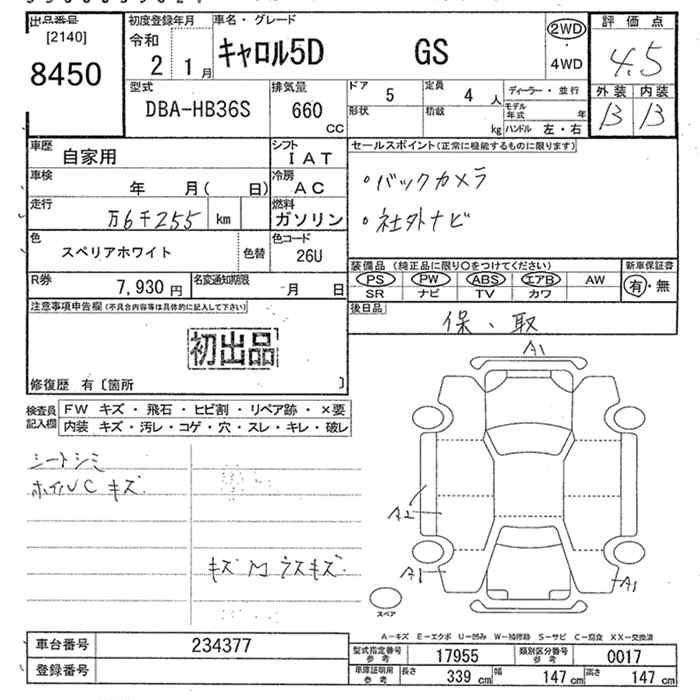 出品番号 初度登録年月 車名・グレード 2WD 評価点
[2140] 令和 キャロル5D GS 4.5
8450 2 1月 4WD 外装 内装
型式 排気量 ドア 5 定員 4人 ディーラー・並行 B B
DBA-HB36S 660 cc 形状 積載 kg モデル年式 年
ハンドル 左・右
車歴 自家用 シフト IAT セールスポイント(正常に機能するものに限ります)
車検 年 月( 日) 冷房 AC ・バックカメラ
走行 万6千255 km 燃料 ガソリン ・社外ナビ
色 スペリアホワイト 色替 色コード 26U
装備品 (純正品に限り○をつけてください) 新車保証書
R券 7,930円 名変通知期限 月 日 PS PW ABS エアB AW 有・無
SR ナビ TV カワ
注意事項申告欄(不具合内容等は具体的に記入して下さい) 後日品
保、取
初出品
修復歴 有〔箇所 〕
A1
検査員記入欄 FW キズ・飛石・ヒビ割・リペア跡・×要
内装 キズ・汚レ・コゲ・穴・スレ・キレ・破レ
シートシミ
ホイルC キズ
A2
キズ M ラスキズ
A1 A1
スペア
A-キズ E-エクボ U-凹み W-補修跡 S-サビ C-腐食 XX-交換済
車台番号 234377 型式指定番号 参考 17955 類別区分番号 参考 0017
登録番号 車庫証明用 参考 長さ 339cm 幅 147cm 高さ 147cm